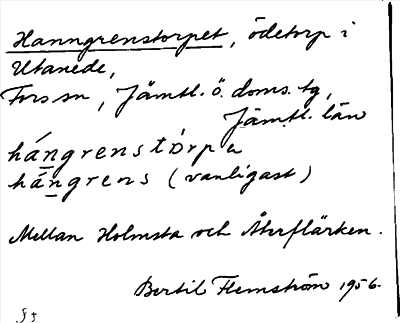 Hanngrenstorpet, ödetorp i
Utanede,
Fors sn, Jämtl. ö. doms. tg,
Jämtl. län
hángrenstòrpa
hángrens (vanligast)
Mellan Holmsta och Åkerflärken.
Bertil Flemström 1956.